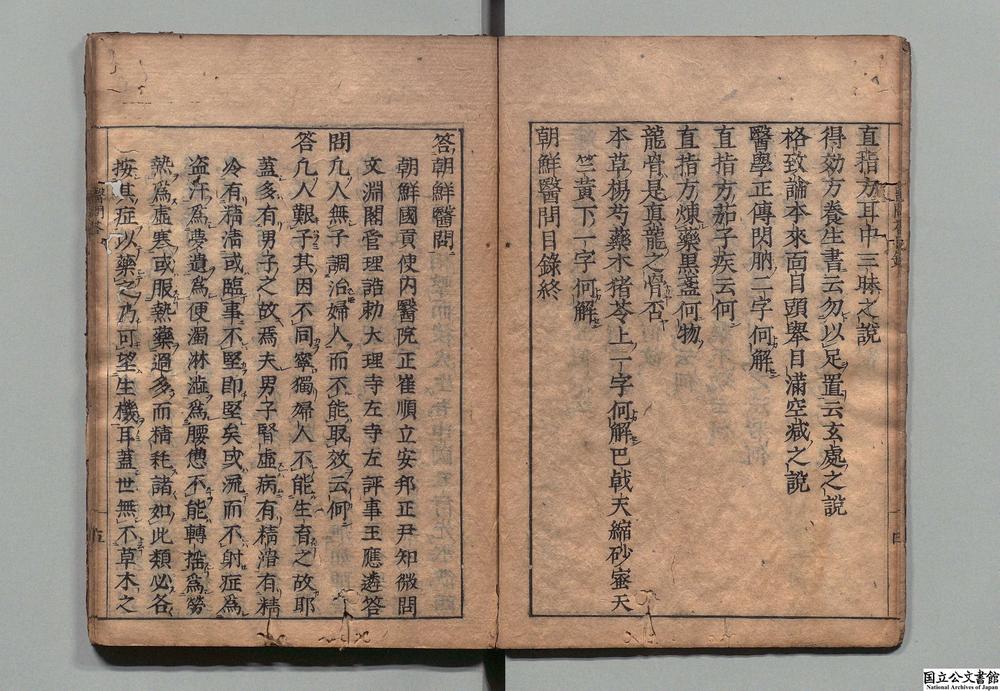 直指方耳中三昧之說
得効方養生書云勿以足置云玄處之說
格致論本來面目頭舉目滿空減之說
醫學正傳閃肭二字何解
直指方茄子疾云何
直指方煉藥黒盞何物
龍骨是眞龍之骨否
本草楊芍藥木猪苓上一字何解巴戟天縮砂蜜天
竺黃下一字何解
朝鮮醫問目錄終
答朝鮮醫問
朝鮮國貢使内醫院正崔順立安邦正尹知微問
文淵閣管理誥勅大理寺左寺左評事王應遴答
問凢人無子調治婦人而不能取效云何
答凢人艱子其因不同寧獨婦人不能生育之故耶
蓋多有男子之故焉夫男子腎虛病有精滑有精
冷有精清或臨事不堅即堅矣或流而不射症爲
盗汗爲夢遺爲便濁淋澁爲腰憊不能轉揺爲勞
熱爲虛寒或服熱藥過多而精耗諸如此類必各
按其症以藥之乃可望生機耳蓋世無不草木之
四
五
国立公文書館
National Archives of Japan